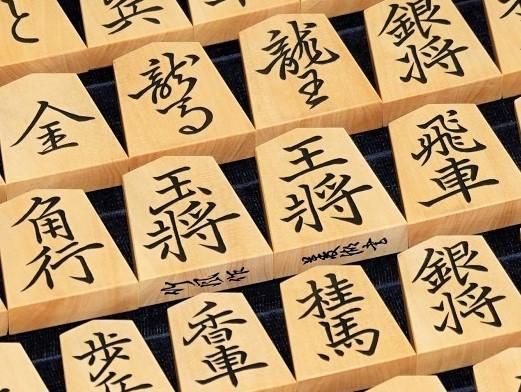 と
兵
銀将
金
龍馬
龍王
飛車
角行
玉将
王将
歩兵
香車
桂馬
銀将